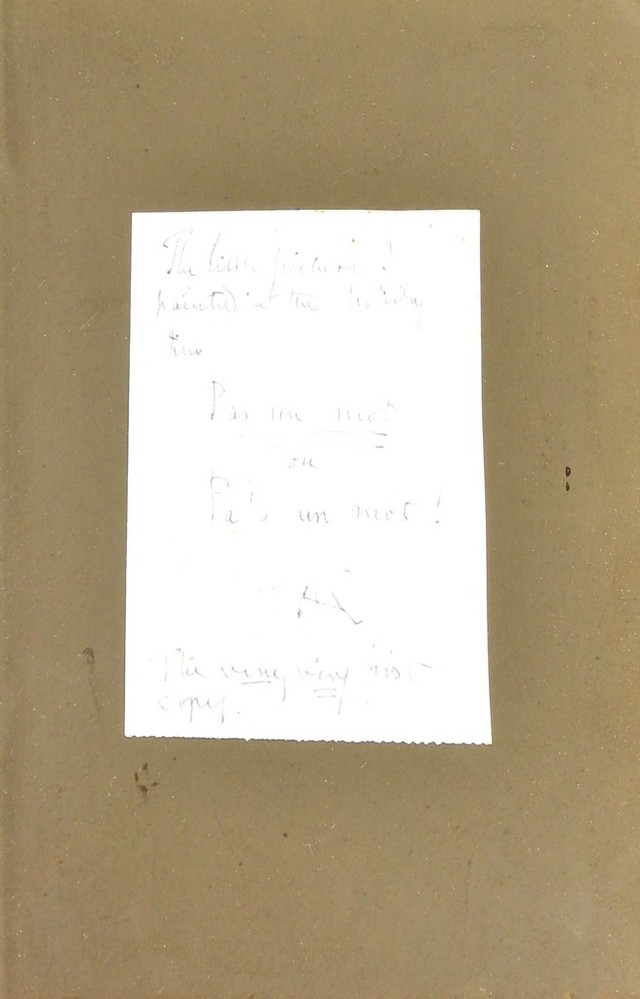 The little picture!
painted in the holiday
time
Pas un mot
ou
Pa's un mot!
The very very first
copy.